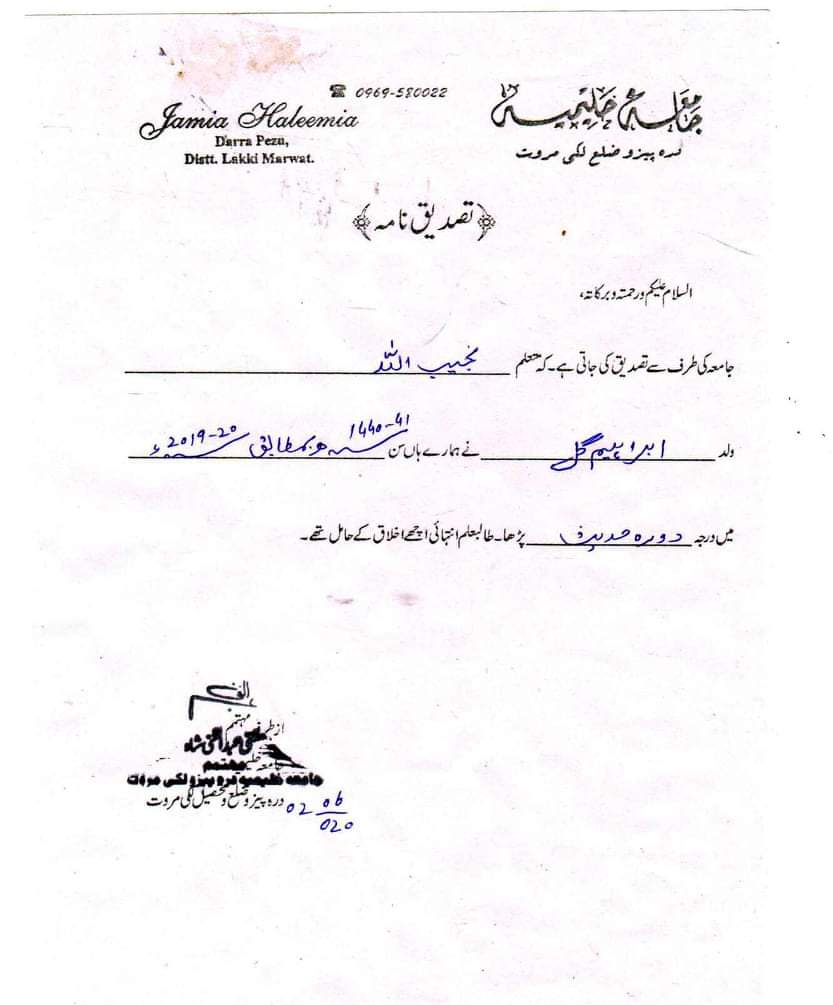 ☎ 0969-580022
Jamia Haleemia
Darra Pezu,
Distt. Lakki Marwat.
جامعہ حلیمیہ
درہ پیزو ضلع لکی مروت
﴿تصدیق نامہ﴾
السلام علیکم ورحمتہ وبرکاتہ،
جامعہ کی طرف سے تصدیق کی جاتی ہے۔ کہ متعلم نجیب اللہ
ولد ابراہیم گل نے ہمارے ہاں سن 1440-41 ھ بمطابق 2019-20ء
میں درجہ دورہ حدیث پڑھا۔ طالبعلم انتہائی اچھے اخلاق کے حامل تھے۔
از طرف مہتمم
شاہ
جامعہ
مہتمم
جامعہ حلیمیہ درہ پیزو لکی مروت
درہ پیزو ضلع و تحصیل لکی مروت
02 06
020